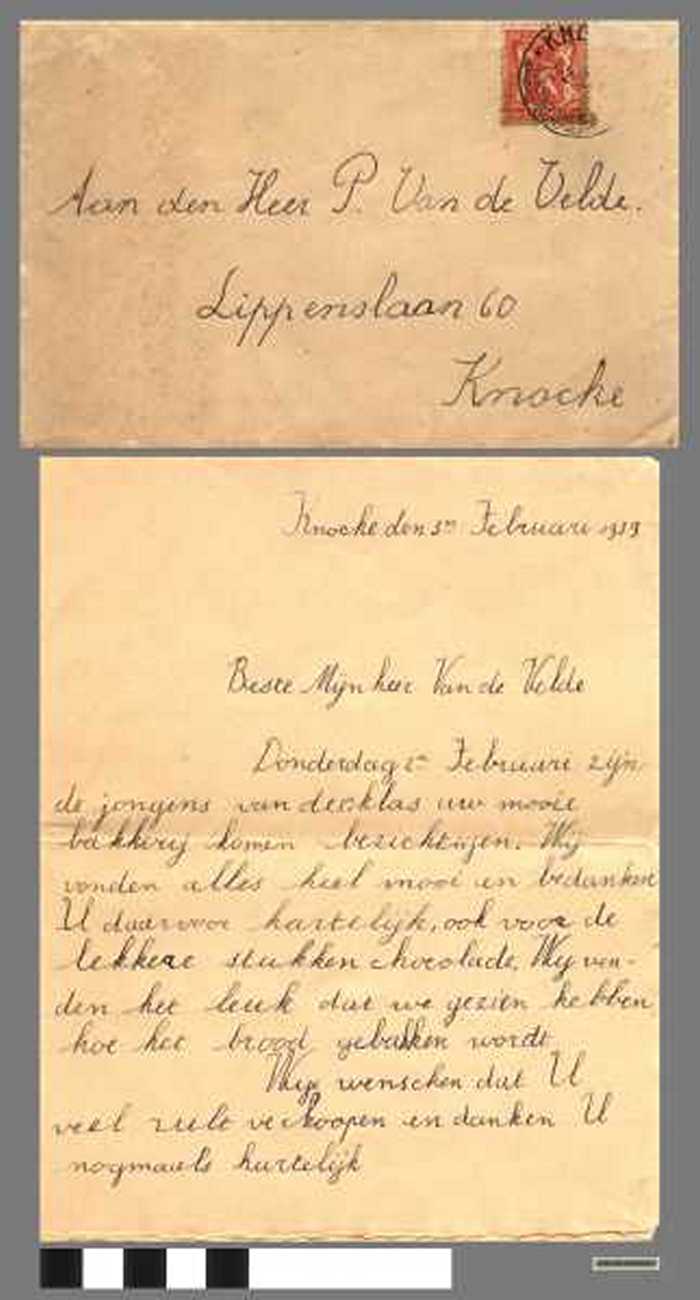 KNC
Aan den Heer P. Van de Velde.
Lippenslaan 60
Knocke
Knocke den 3en Februari 1939
Beste Mijnheer Van de Velde
Donderdag 2en Februari zijn
de jongens van de klas uw mooie
bakkerij komen bezichtigen. Wij
vonden alles heel mooi en bedanken
U daarvoor hartelijk, ook voor de
lekkere stukken chocolade. Wij von-
den het leuk dat we gezien hebben
hoe het brood gebakken wordt
Wij wenschen dat U
veel zult verkoopen en danken U
nogmaals hartelijk